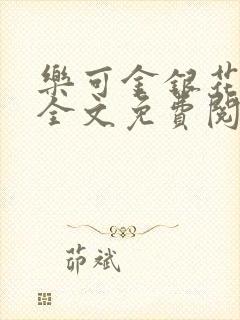 樂可金銀花
全文免費閱
茆斌